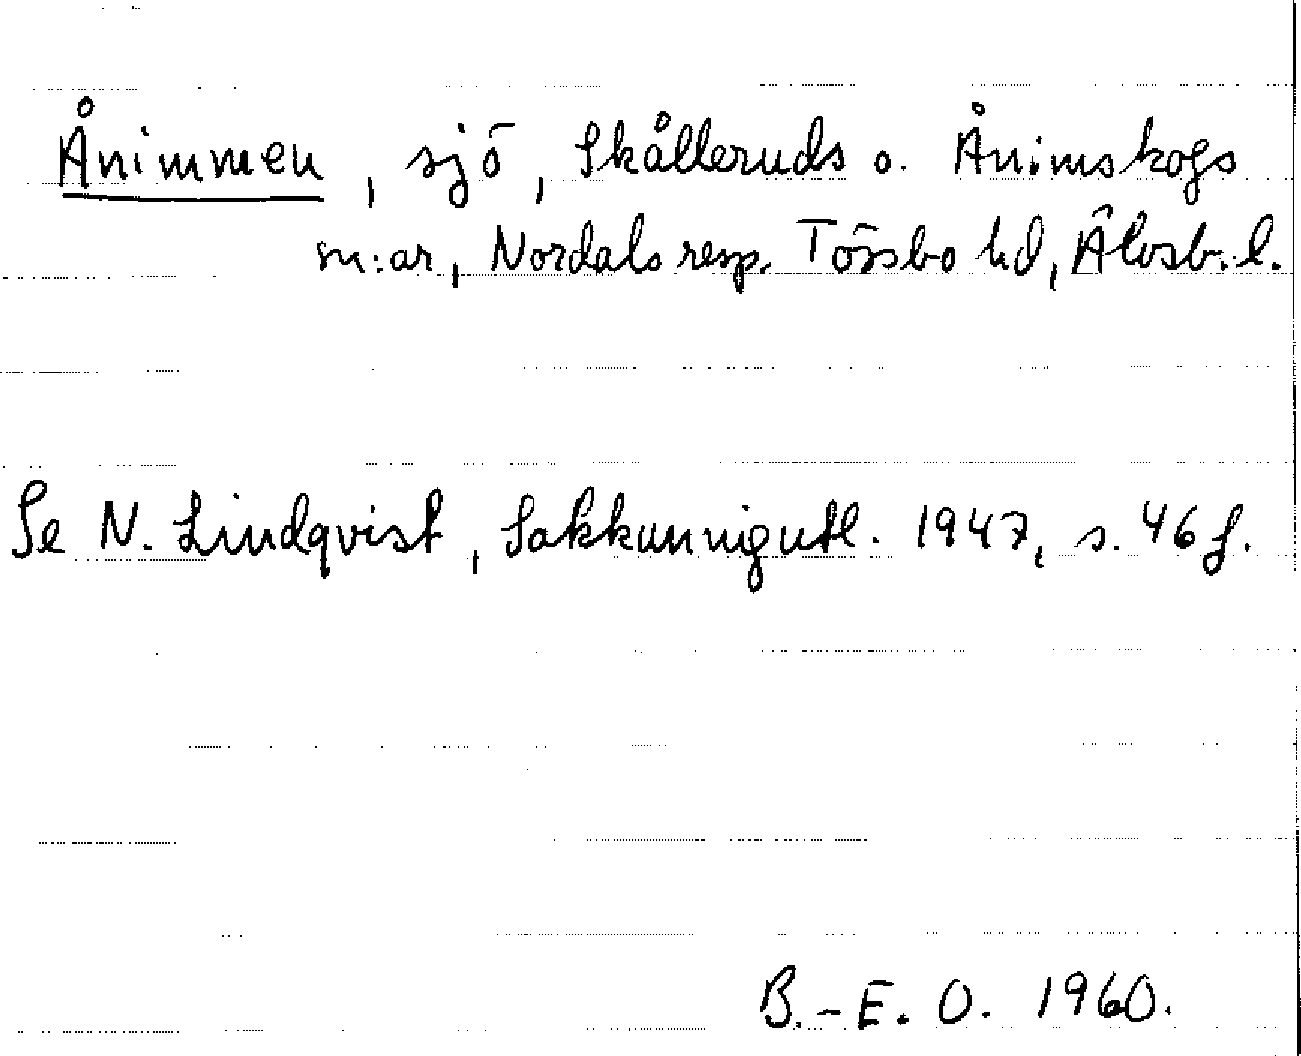 Ånimmen, sjö, Skålleruds o. Ånimskogs
sn:ar, Nordals resp. Tössbo hd, Älvsb. l.
Se N. Lindqvist, Sakkunnigutl. 1947, s. 46 f.
B.-E. O. 1960.